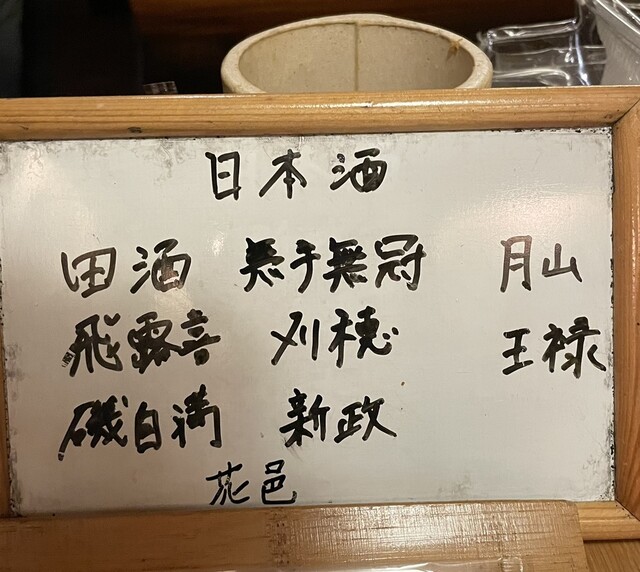 日本酒
田酒 無手無冠 月山
飛露喜 刈穂 王禄
磯自満 新政
花邑